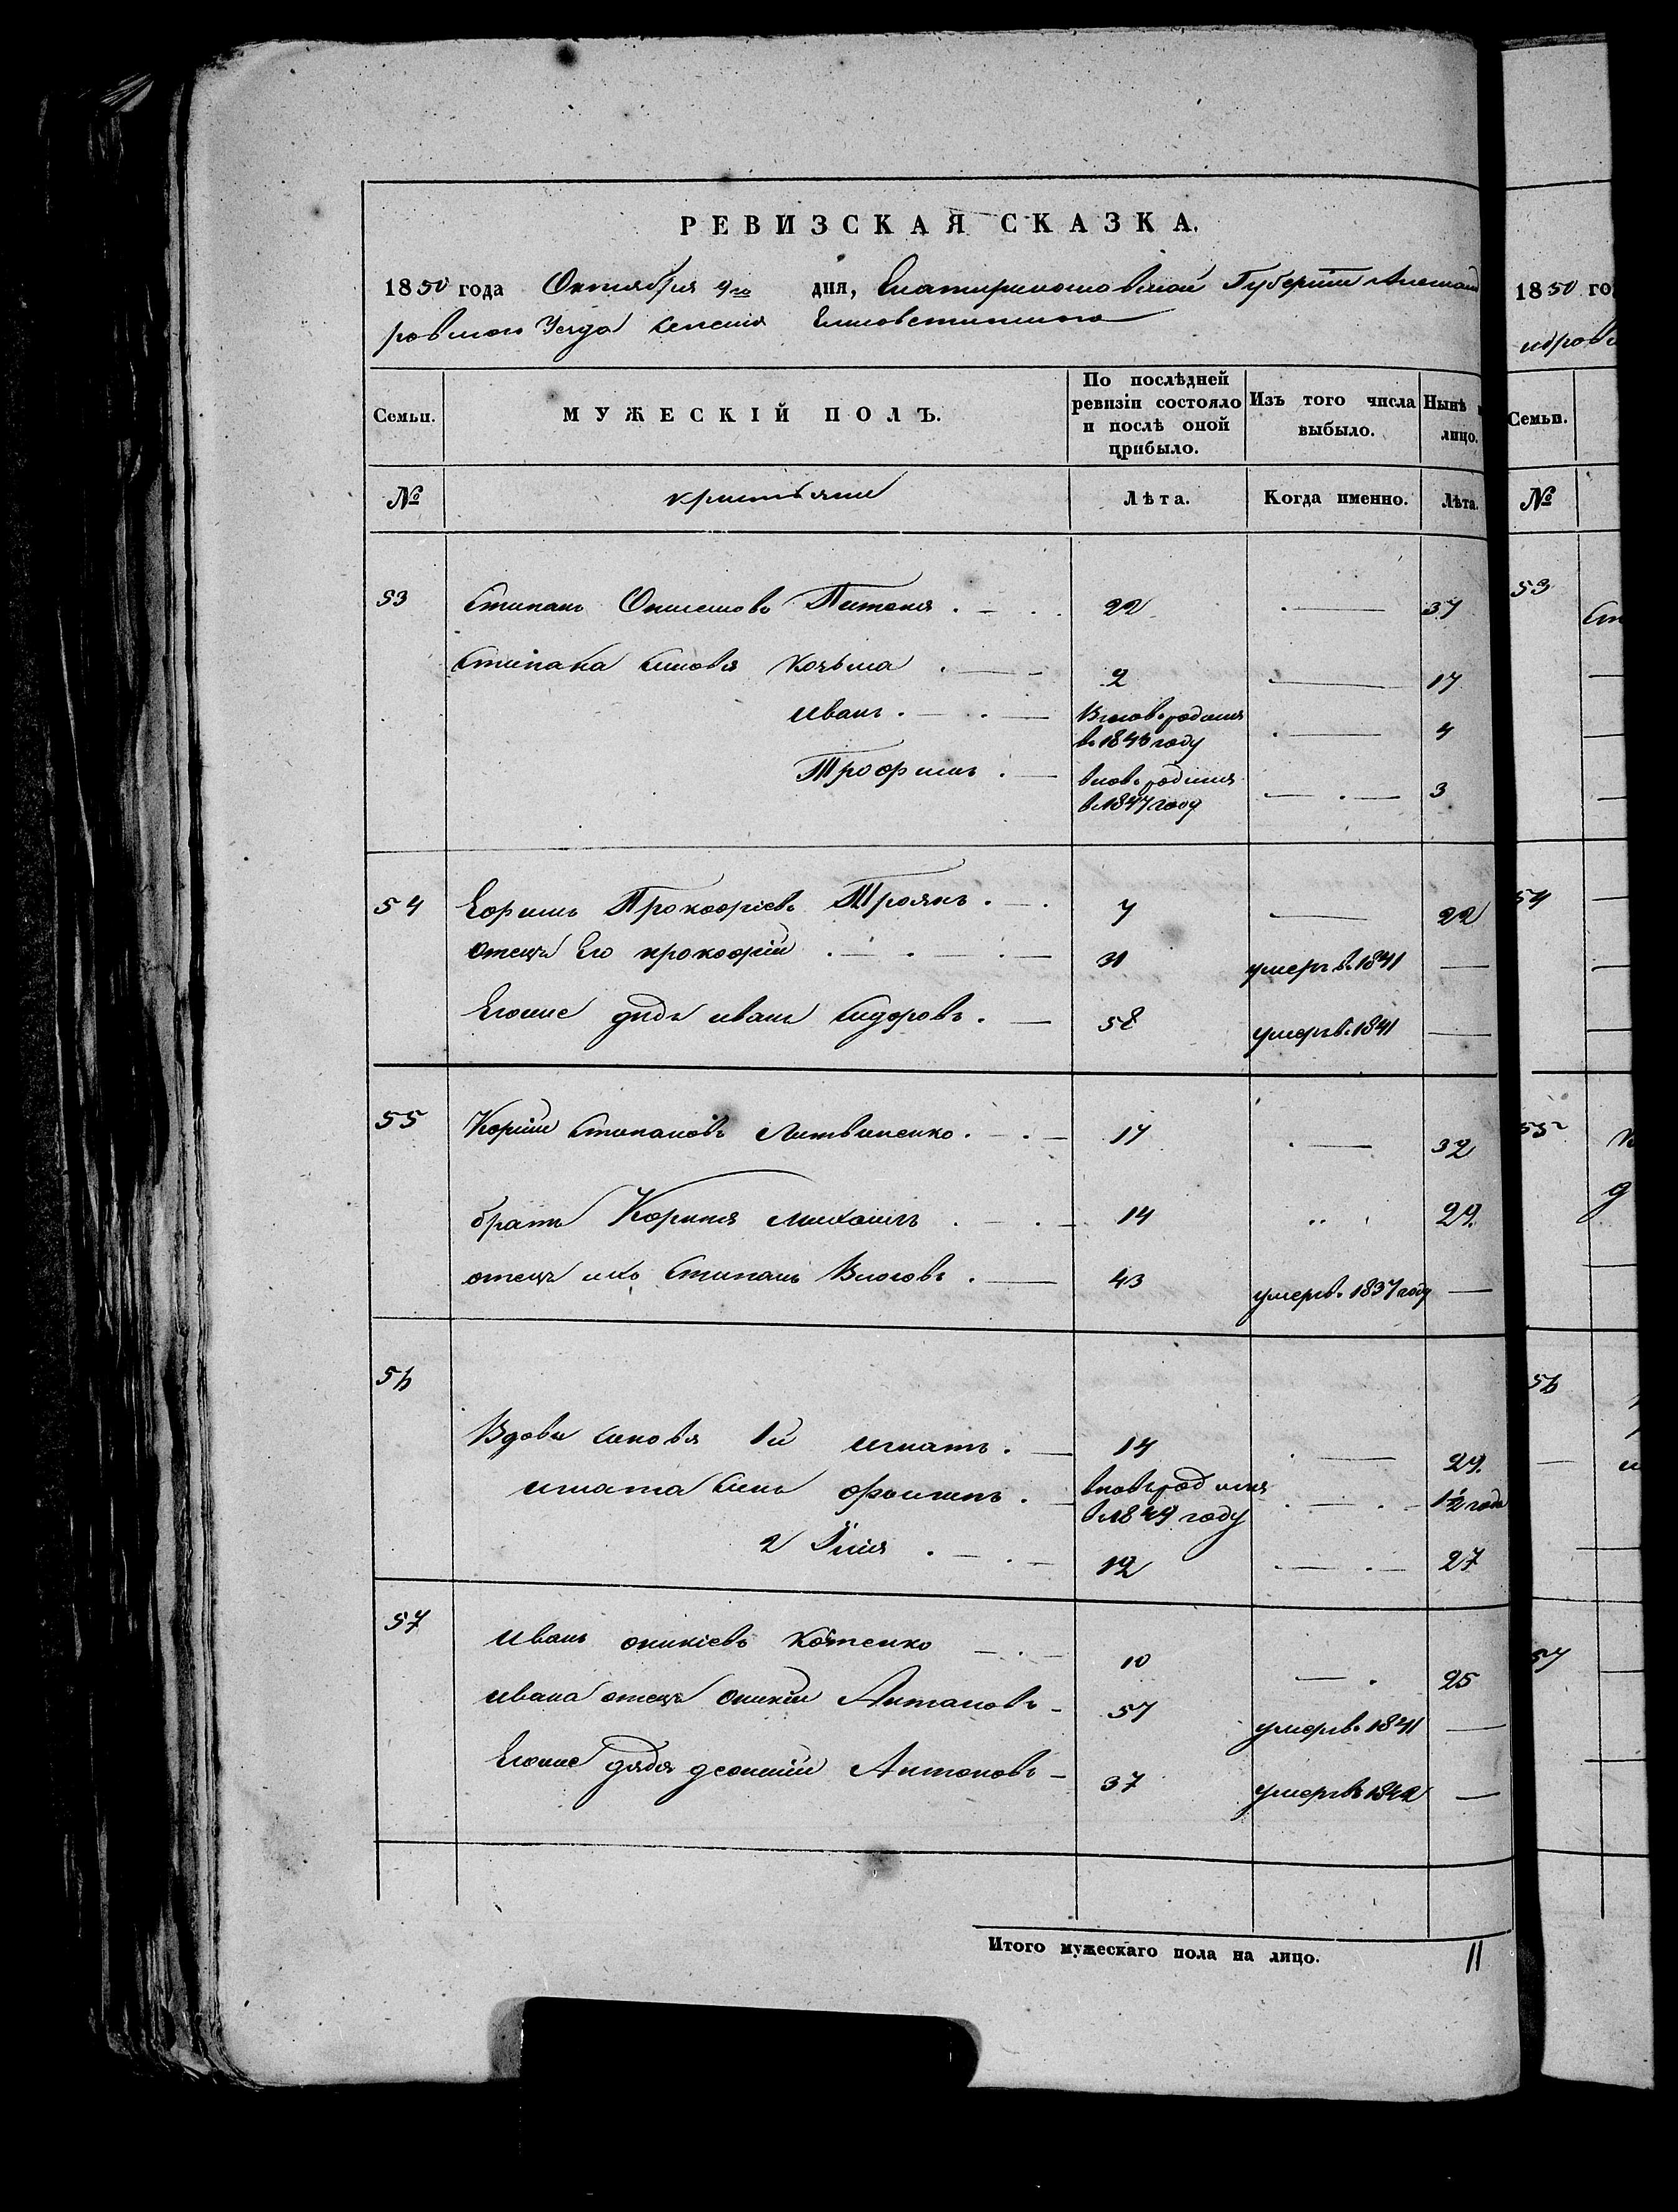 РЕВИЗСКАЯ СКАЗКА.
1850 года Октября 9го дня, Екатеринославской Губернии Александ
ровского Уезда селения
Семьи. МУЖЕСКІЙ ПОЛЪ. По послѣдней ревизіи состояло и послѣ оной прибыло. Изъ того числа выбыло. Нынѣ лицо.
№ крестьяне Лѣта. Когда именно. Лѣта.
53 Степанъ Петеня 22 37
Степана сыновя Козьма 2 17
иванъ вновь родился в 1846 году 4
Трофимъ вновь родился в 1847 году 3
54 Ефимъ Прокофіевъ Троянъ 7 22
отецъ Его прокофій 31 умеръ в 1841
Егоже дядъ иванъ Сидоровъ 58 умеръ в 1841
55 Степановъ Литвиненко 17 32
братъ михаилъ 14 29
отецъ ихъ Степанъ Власовъ 43 умеръ в 1837 году
56
Вдовы сыновя 1й игнатъ 14 29
игната сынъ филипъ вновь родился в 1849 году 1½ года
2 Илія 12 27
57 иванъ оникіевъ Котенко 10 25
ивана отецъ оникій Антоновъ 57 умеръ в 1841
Егоже дядя Антоновъ 37 умеръ въ 1842
Итого мужескаго пола на лицо. 11
1850 го
Семьи.
№
53
54
55
56
57